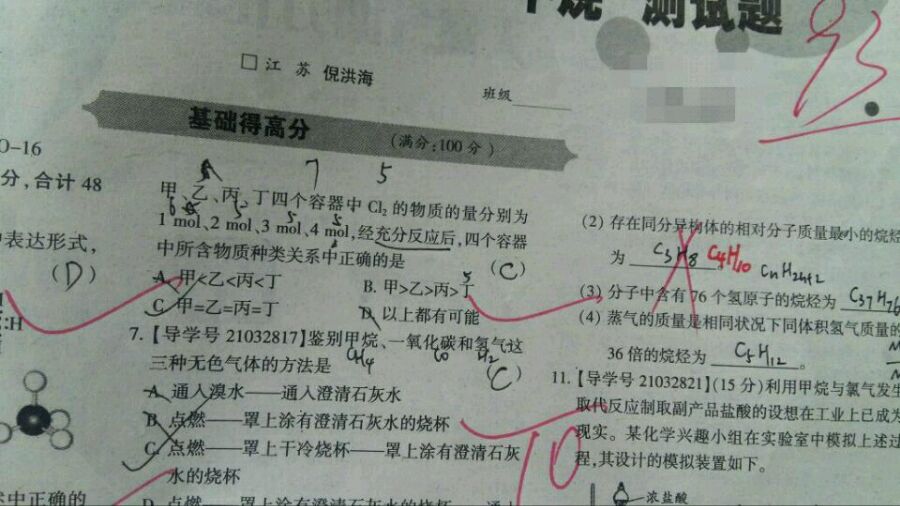 烷 测试题
93
□ 江 苏 倪洪海
班级
基础得高分
(满分:100 分)
O-16
分,合计 48
表达形式,
(D)
:H
术中正确的
7 5
甲、乙、丙、丁四个容器中 Cl₂ 的物质的量分别为
1 mol、2 mol、3 mol、4 mol,经充分反应后,四个容器
中所含物质种类关系中正确的是
(C)
A. 甲<乙<丙<丁
B. 甲>乙>丙>丁
5
C. 甲=乙=丙=丁
D. 以上都有可能
7.【导学号 21032817】鉴别甲烷、一氧化碳和氢气这
CH4 CO H2
三种无色气体的方法是
(C)
A. 通入溴水——通入澄清石灰水
B. 点燃——罩上涂有澄清石灰水的烧杯
C. 点燃——罩上干冷烧杯——罩上涂有澄清石灰
水的烧杯
D. 点燃——罩上涂有澄清石灰水的烧杯——通
10
(2) 存在同分异构体的相对分子质量最小的烷烃
为 C3H8 C4H10
CnH2n+2
(3) 分子中含有 76 个氢原子的烷烃为 C37H76
(4) 蒸气的质量是相同状况下同体积氢气质量的
36 倍的烷烃为 C5H12 。
11.【导学号 21032821】(15 分)利用甲烷与氯气发生
取代反应制取副产品盐酸的设想在工业上已成为
现实。某化学兴趣小组在实验室中模拟上述过
程,其设计的模拟装置如下。
浓盐酸